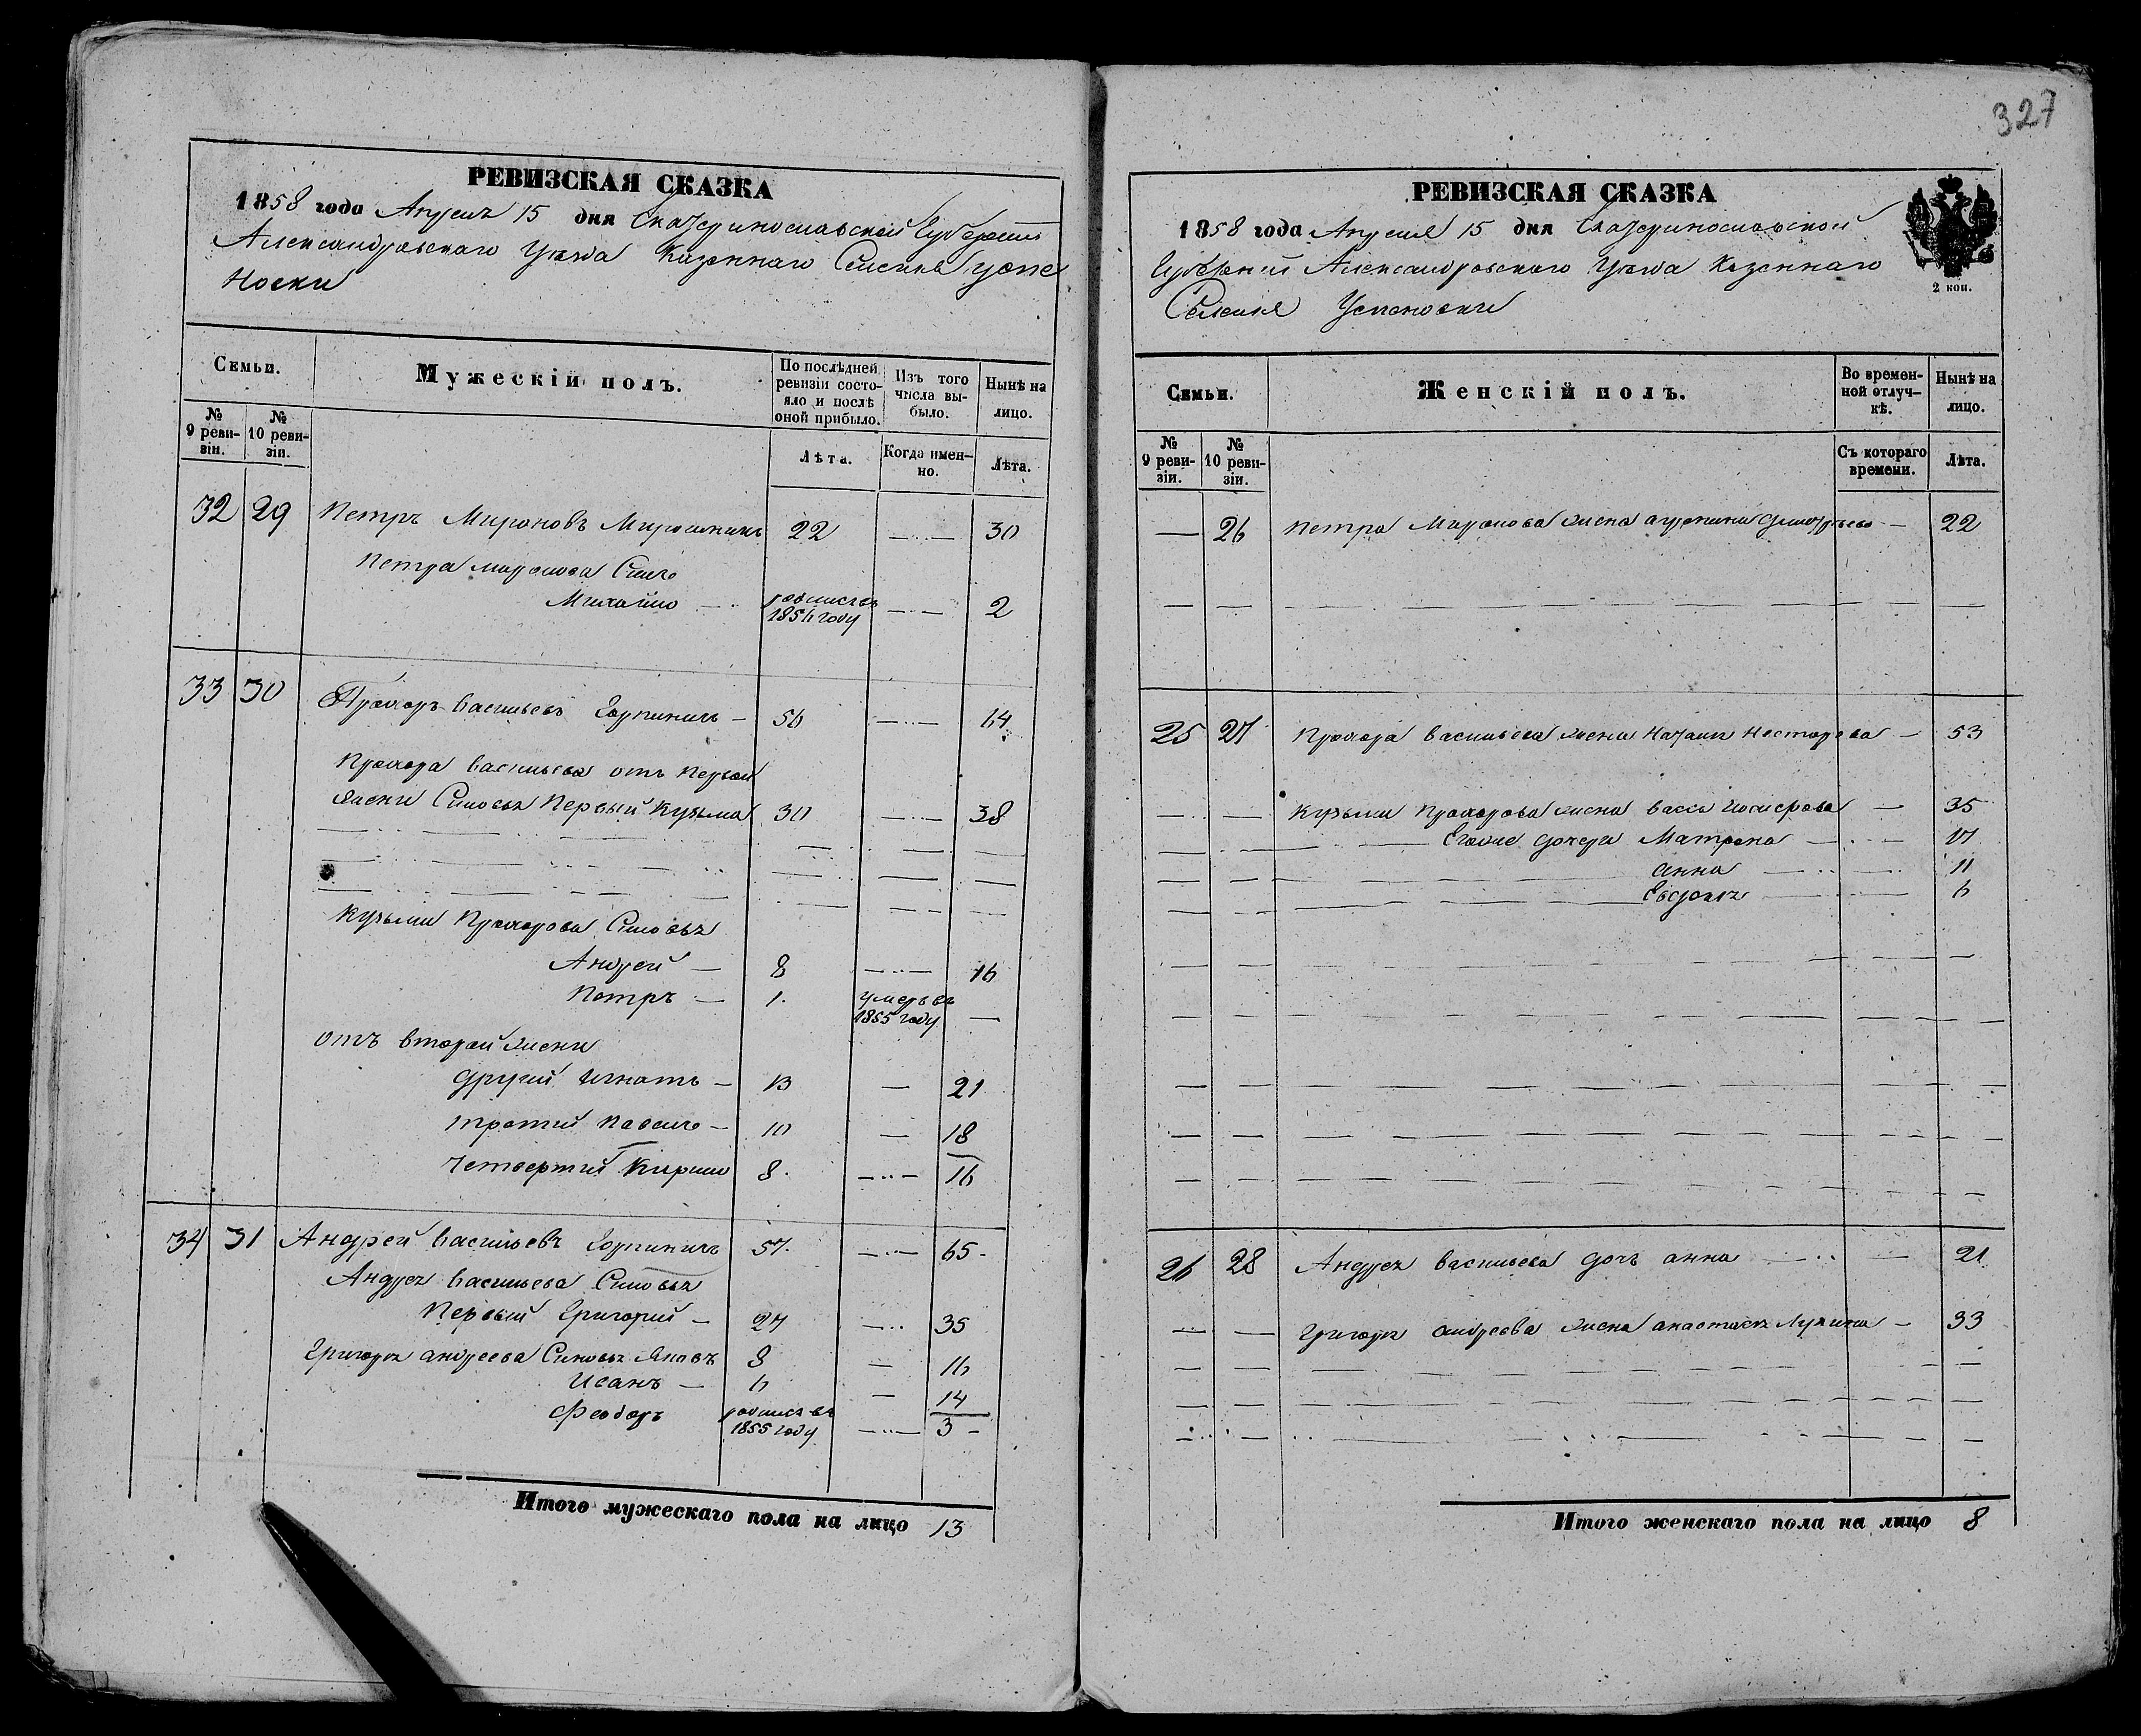 РЕВИЗСКАЯ СКАЗКА
1858 года Апреля 15 дня Екатеринославской Губернии
Александровскаго Уезда Казеннаго Селения Успе
новки
Семьи.
Мужескій полъ.
По послѣдней ревизіи состо-
яло и послѣ
оной прибыло.
Изъ того
числа вы-
было.
Нынѣ на
лицо.
№
9 реви-
зіи.
№
10 реви-
зіи.
Лѣта.
Когда имен-
но.
Лѣта.
32 29 Петръ Мироновъ 22 — 30
Петра Миронова Сынъ
Михайло — 1856 году — 2
33 30 Прохоръ Васильевъ — 56 — 64
Прохора Васильева отъ первой
жены Сыновья Первый Кузьма 30 — 38
Кузьмы Прохорова Сыновья
Андрей — 8 — 16
Петръ — 1. умеръ въ
1855 году —
отъ второй жены
другий Игнатъ — 13 — 21
третий Павело — 10 — 18
Четвертий Кирило 8. — 16
34 31 Андрей Васильевъ 57. — 65 -
Андрея Васильева Сыновья
Первый Григорий — 27 — 35
Григория андреева Сыновья Яковъ 8 — 16
Иванъ — 6 — 14
Феодоръ
1855 году — 3 -
Итого мужескаго пола на лицо 13
327
РЕВИЗСКАЯ СКАЗКА
1858 года Апреля 15 дня Екатеринославской
Губернии Александровскаго Уезда Казеннаго
Селения Успеновки
2 коп.
Семьи.
Женскій полъ.
Во времен-
ной отлуч-
кѣ.
Нынѣ на
лицо.
№
9 реви-
зіи.
№
10 реви-
зіи.
Съ котораго
времени.
Лѣта.
— 26 Петра Миронова жена — 22
25 27 Прохора Васильева жена Наталия Нестерова — 53
Кузьмы Прохорова жена Васса — 35
Еговие дочери Матрена — 17
анна — 11
Евдокия — 6
26 28 Андрея Васильева дочь анна — 21
Григория андреева жена анастасия Лукина — 33
Итого женскаго пола на лицо 8